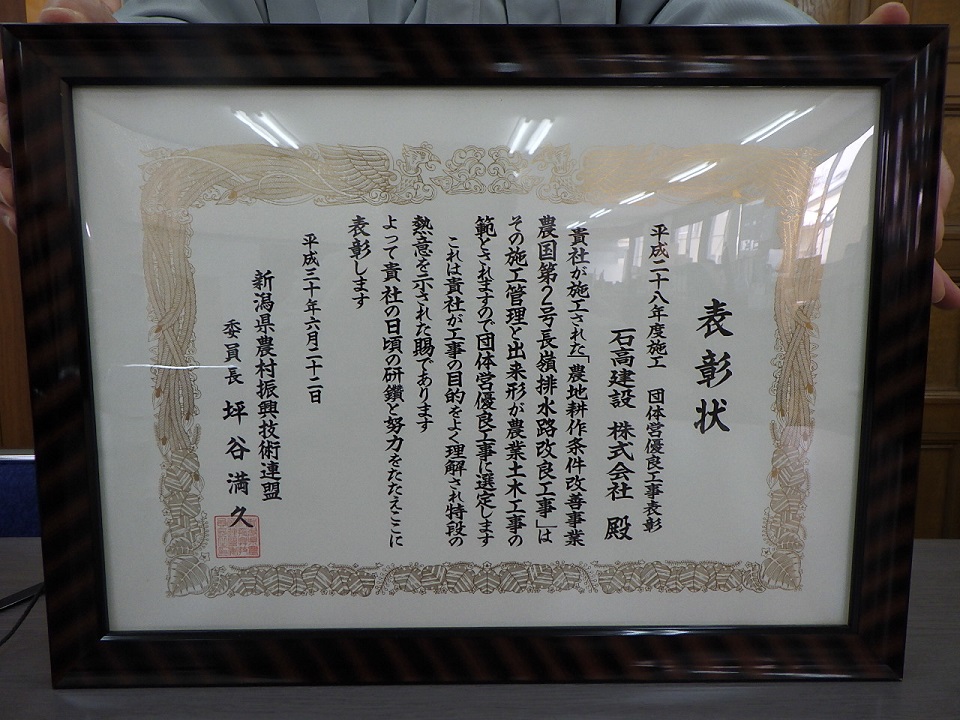 表彰状
平成二十八年度施工 団体営優良工事表彰
石高建設 株式会社 殿
貴社が施工された「農地耕作条件改善事業
農国第2号長嶺排水路改良工事」は
その施工管理と出来形が農業土木工事の
範とされますので団体営優良工事に選定します
これは貴社が工事の目的をよく理解され特段の
熱意を示された賜であります
よって貴社の日頃の研鑽と努力をたたえここに
表彰します
平成三十年六月二十二日
新潟県農村振興技術連盟
委員長 坪谷満久